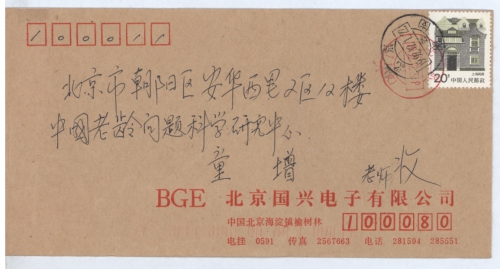 100011
20分 中国人民邮政
北京市朝阳区安华西里2区12楼
中国老龄问题科学研究中心
童增 老师 收
BGE 北京国兴电子有限公司
中国北京海淀镇榆树林 100080
电挂 0501 传真 2567663 电话 281504 285551